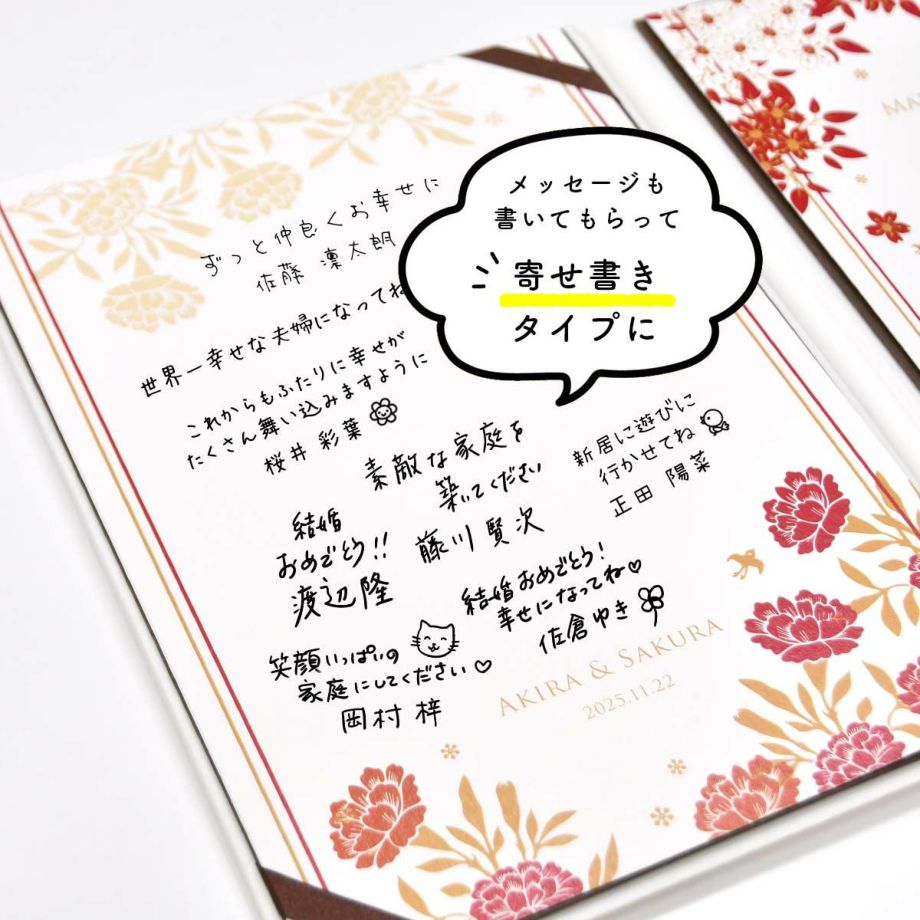 メッセージも
書いてもらって
寄せ書き
タイプに
ずっと仲良くお幸せに
佐藤 凜太朗
世界一幸せな夫婦になってね
これからもふたりに幸せが
たくさん舞い込みますように
桜井 彩葉
素敵な家庭を
築いてください
藤川賢次
新居に遊びに
行かせてね
正田 陽菜
結婚
おめでとう!!
渡辺隆
結婚おめでとう!
幸せになってね♡
佐倉ゆき
笑顔いっぱいの
家庭にしてください♡
岡村 梓
AKIRA & SAKURA
2025.11.22
MA